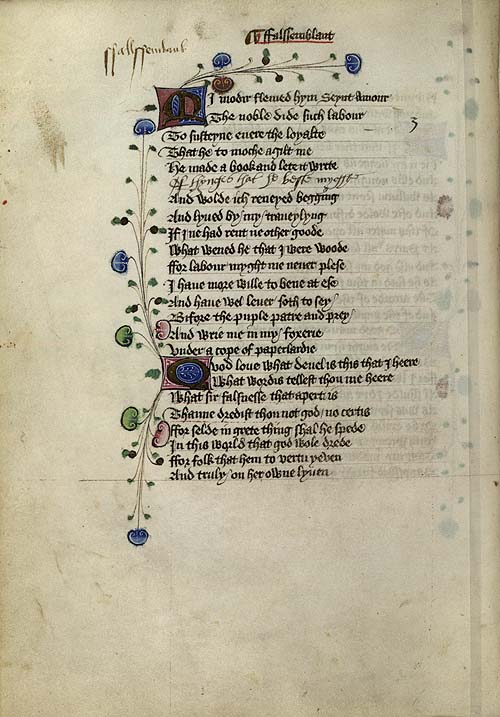 Falssemblant
ffalssemblant
MI modir flemed hym Seynt Amour
The noble dide such labour
3
To susteyne euere the loyalte
That he to moche agilt me
He made a book and lete it write
Of thynges that he beste myghte
And wolde ich reneyed begging
And lyued by my traueylyng
If I ne had rent ne other goode
What wened he that I were woode
ffor labour myght me neuer plese
I haue more wille to bene at ese
And haue wel leuer soth to sey
Bifore the puple patre and prey
And wrie me in my foxerie
Vnder a cope of papelardie
Quod loue what deuel is this that I heere
What wordis tellest thou me heere
What sir falsnesse that apert is
Thanne dredist thou not god no certis
ffor selde in grete thing shal he spede
In this world that god wole drede
ffor folk that hem to vertu yeuen
And truly on her owne lyuen